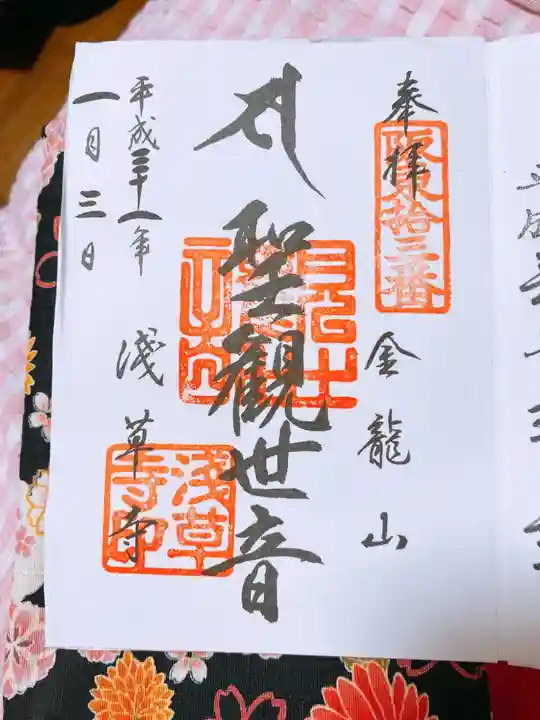 奉拝
阪東拾三番
金龍山
聖觀世音
平成三十一年
一月三日
淺草寺
淺草寺印